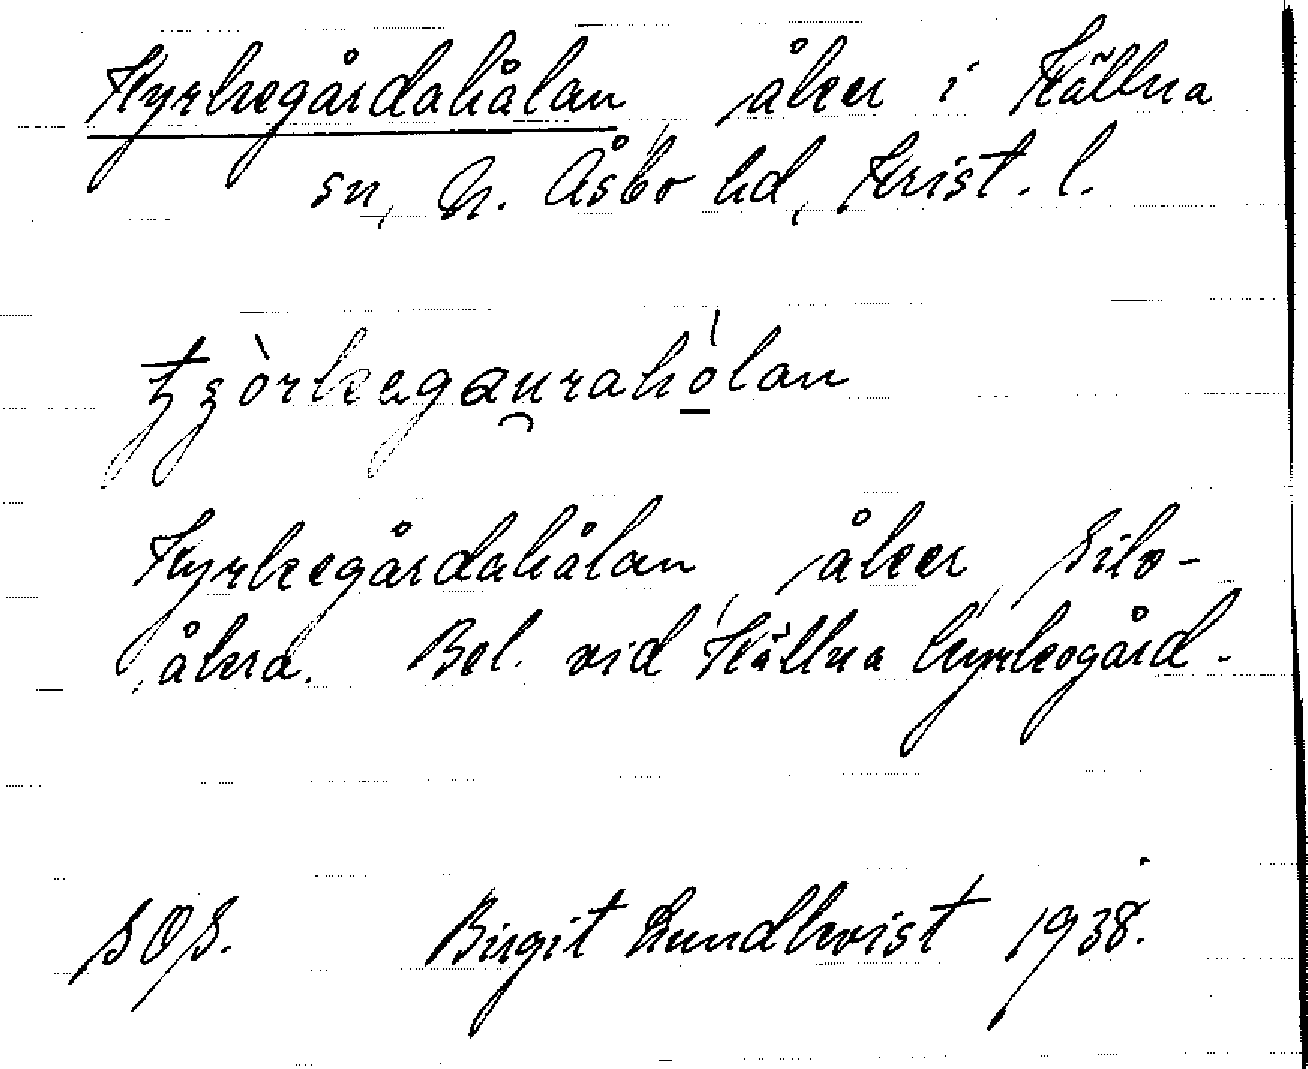 Kyrkegårdahålan, åker i Källna
sn, N. Åsbo hd, Krist. l.
Kyrkegårdahålan, åker, Silo-
åkra. Bel. vid Källna kyrkogård.
SOS. Birgit Lundkvist 1938.